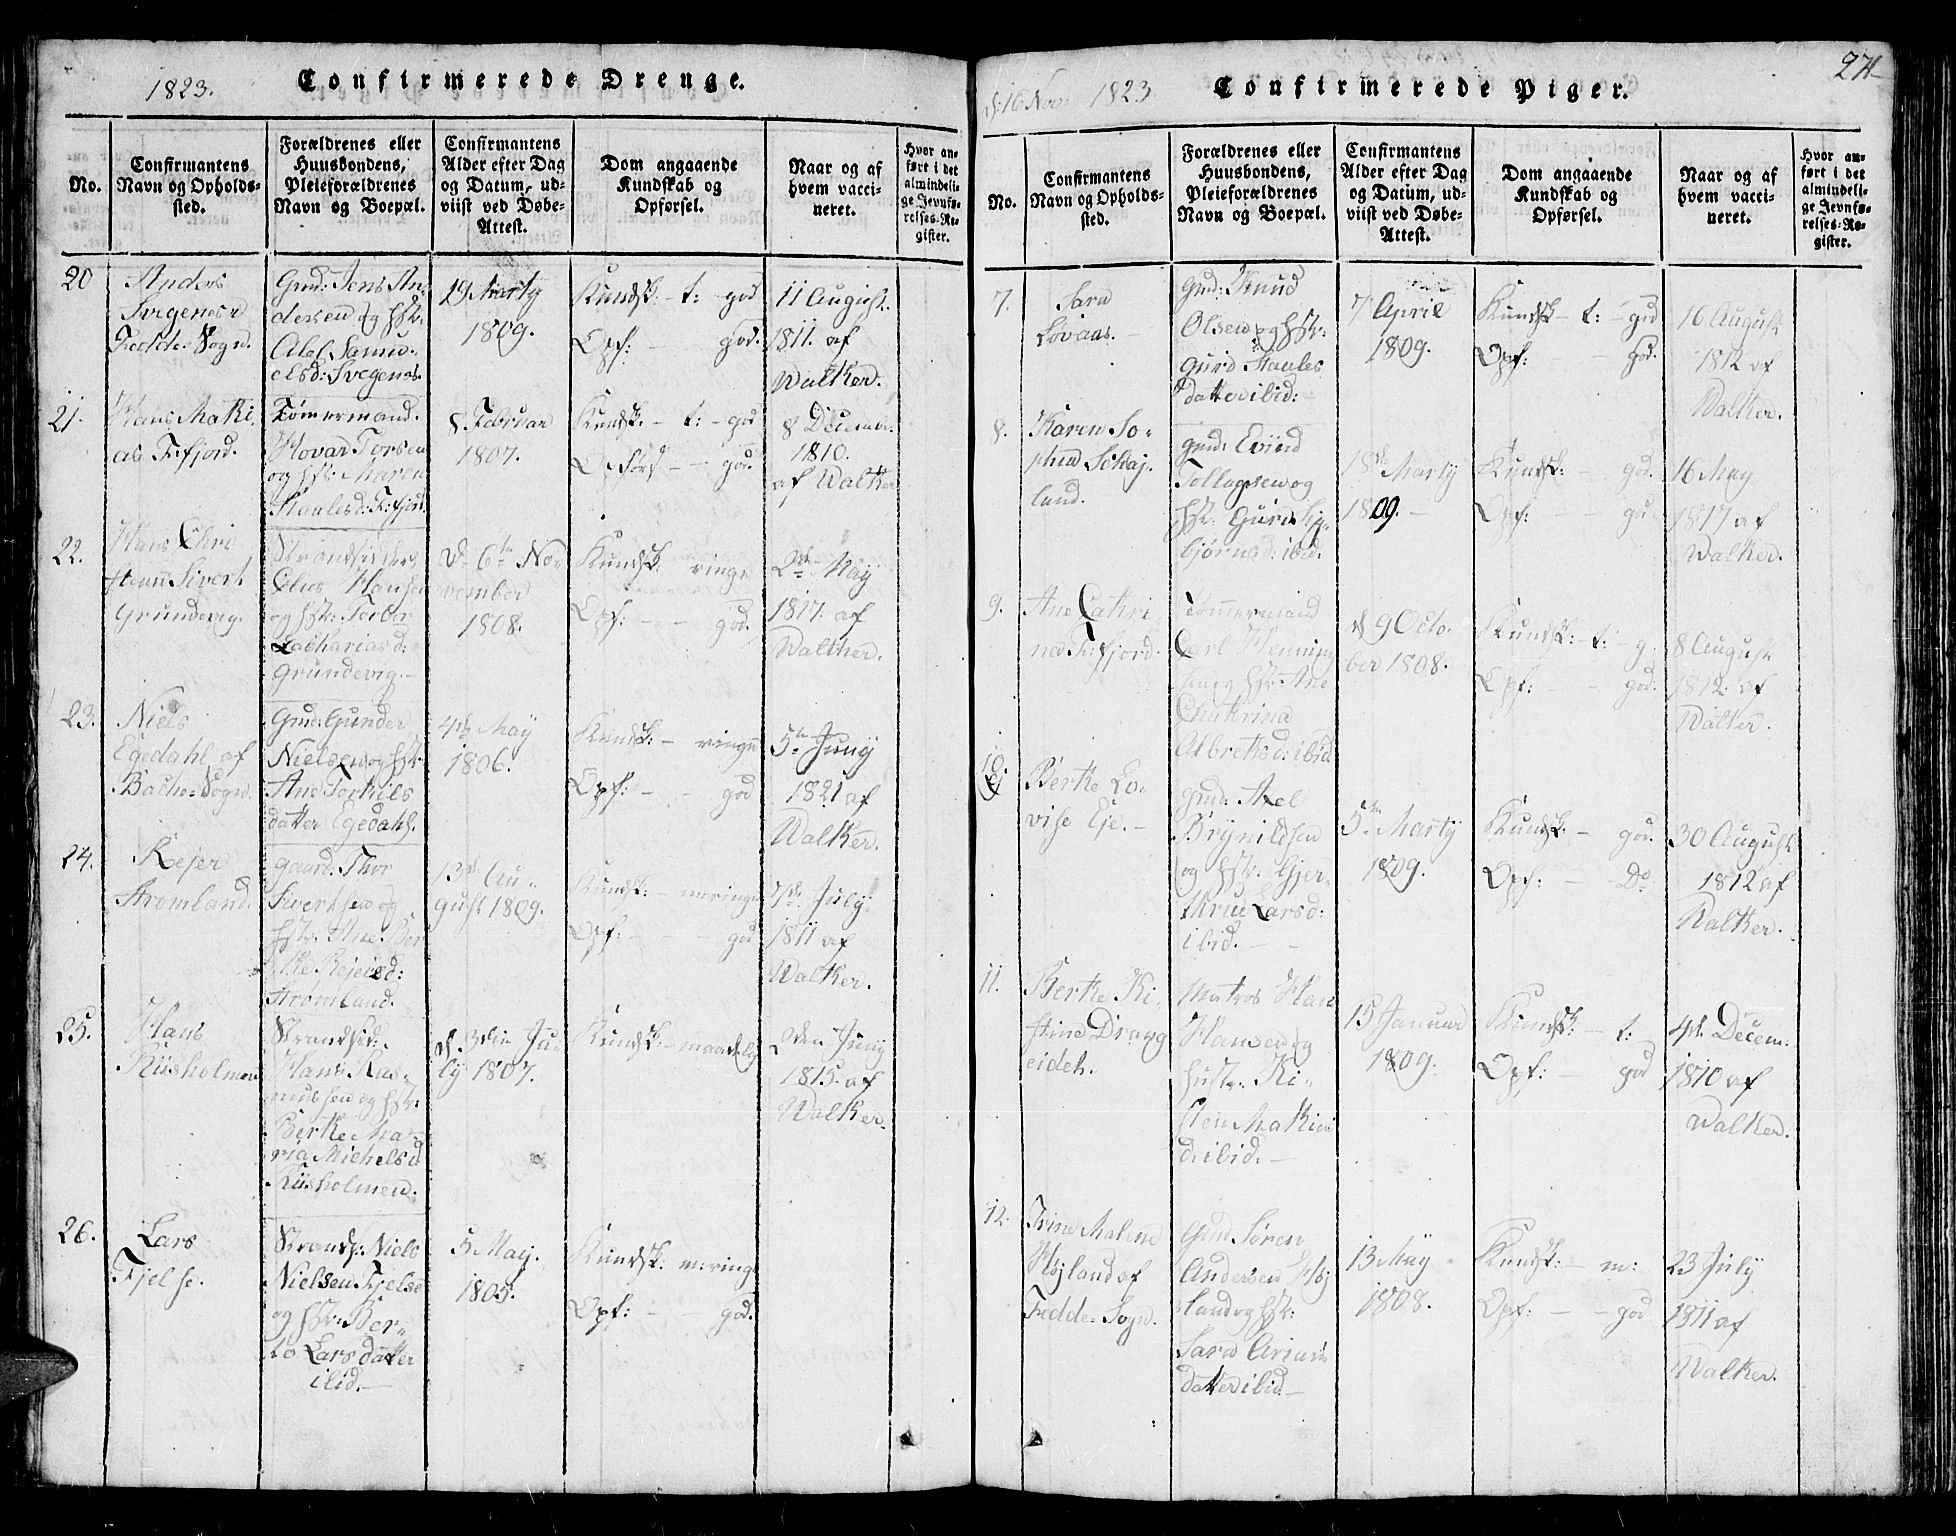 1823.
Confirmerede Drenge.
No.
Confirmantens
Navn og Opholds-
sted.
Forældrenes eller
Huusbondens,
Pleieforældrenes
Navn og Boepæl.
Confirmantens
Alder efter Dag
og Datum, ud-
viist ved Døbe-
Attest.
Dom angaaende
Kundskab og
Opførsel.
Naar og af
hvem vacci-
neret.
Hvor an-
ført i det
almindeli-
ge Jevnfø-
relses-Re-
gister.
20
Anders
Svegenes
Fedde Sogn.
Gmd: Jens An-
dersen og Hstr:
Abel Samu-
elsd: Svegenes.
19 Marty
1809.
Kundsk: - t: - god
Opf: - - god.
11 August
1811. af
Walker.
21.
Hans Mathi-
as F:fjord.
Tømermand
Hovar Torsen
og Hstr: Maren
Staulesd: F:fjord.
8. Februar
1807.
Kundsk: - t: - god
Opførs - - god.
8 Decembr:
1810.
af Walker
22.
Hans Chri-
stenn Sivert
Grundevig.
Strandsidder
Elias Hansen
og Hstr: Tobor
Zachariasd:
Grundevig. -
d. 6te No-
vember
1808.
Kundsk: ringe
Opf: - - god.
May
1817. af
Walker.
23.
Niels
Egedahl af
Bache Sogn.
Gmd: Gunder
Nielsen og Hstr
Ane Torkils
datter Egedahl.
4de May
1806.
Kundsk: - ringe
Opf: - - god
5te Juny
1821 af
Walker.
24.
Rejer
Strømland.
gaard: Thor
Sivertsen og
Hstr: Ane Ber-
the Rejersd:
Strømland.
13de Au-
gust 1809.
Kundsk: - m:ringe
Opf: - - - god
7de July
1811 af
Walker.
25.
Hans
Riisholmen
Strandsid:
Hans Ras-
mussen og Hstr:
Berthe Ma-
ria Michelsd
Riisholmen.
d. 3die Ju-
ly 1807.
Kundsk: - maadelig
Juny
1815. af
Walker.
26.
Lars
Fjelse.
Strands: Niels
Nielsen Fjelse
og Hstr: Ber-
to Larsdatter
ibid. -
5 May.
1805.
Kundsk: m:ring
Opf: - - god.
d: 16 Nov 1823
Confirmerede Piger.
271
No.
Confirmantens
Navn og Opholds-
sted.
Forældrenes eller
Huusbondens,
Pleieforældrenes
Navn og Boepæl.
Confirmantens
Alder efter Dag
og Datum, ud-
viist ved Døbe-
Attest.
Dom angaaende
Kundskab og
Opførsel.
Naar og af
hvem vacci-
neret.
Hvor an-
ført i det
almindeli-
ge Jevnfø-
relses-Re-
gister.
7.
Sara
Lovaas. -
Gmd: Knud
Olsen og Hstr:
Gurid Staules
datter ibid: -
7 April
1809.
Kundsk - t: - god
Opf: - god.
16 August
1812 af
Walker.
8.
Karen So-
phia Schaj-
land.
Gmd: Eviind
Tollagsen og
Hstr: Gurid Sig-
bjørnsd: ibid.
18de Marty
1809. -
Kundsk: - god.
Opf: - - go.
16 May
1817 af
Walker.
9.
Ane Cathri-
ne F:fjord.
Tømmermand
Carl Henning
sen og Hstr: Ane
Chatrina
Albretsd: ibid
d 9 Octo-
ber 1808.
Kundsk: - t: - g.
Opf: - - god.
8 August
1812. af
Walker.
10.
Berthe Lo-
vise Eje. -
Gmd: Axel
Brynildsen
og Hstr: Gjer-
thrue Larsd:
ibid. -
5te Marty
1809.
Kundsk: - god.
Opf: - Do
30 August
1812 af
Walker.
11.
Berthe Ki-
stine Drang
eideh.
Matros Hans
Hansen og
Hustr: Ki-
sten Mathias
d: ibid. -
15 Januar
1809.
Kundsk: - t:
Opf: - god
4de Decem:
1810 af
Walker.
12.
Trine Malene
Højland af
Fedde Sogn.
Gmd Søren
Andersen Høj
land og Hstr:
Sara Arians
datter ibid -
13 May
1808.
Kundsk: - m:
Opf: - - god
23 July
1811 af
Walker.